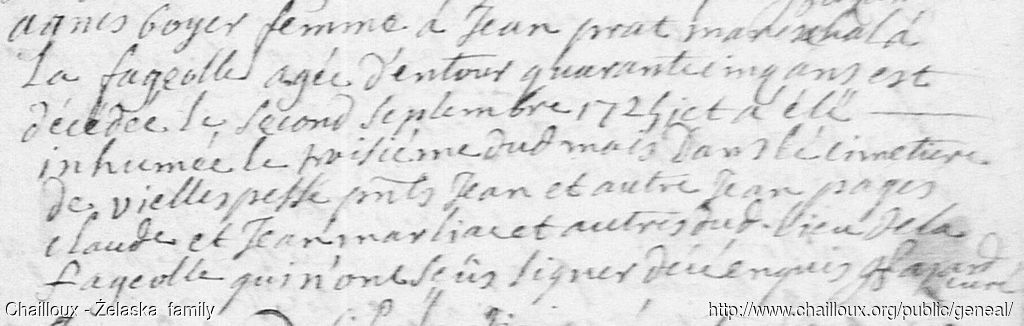 agnis boyer femme a Jean prat mareschal a
La fageolle agée d'entour quarante cinq ans est
décédée le second septembre 1725 et a été
inhumée le troisiéme dud mois Dans le cimetiere
de viellespesse pnts Jean et autre Jean pages
claude et Jean marliac et autres dud. lieu de la
fageolle qui n'ont sçûs signer de ce enquis
curé
Chailloux - Żelaska family
http://www.chailloux.org/public/geneal/